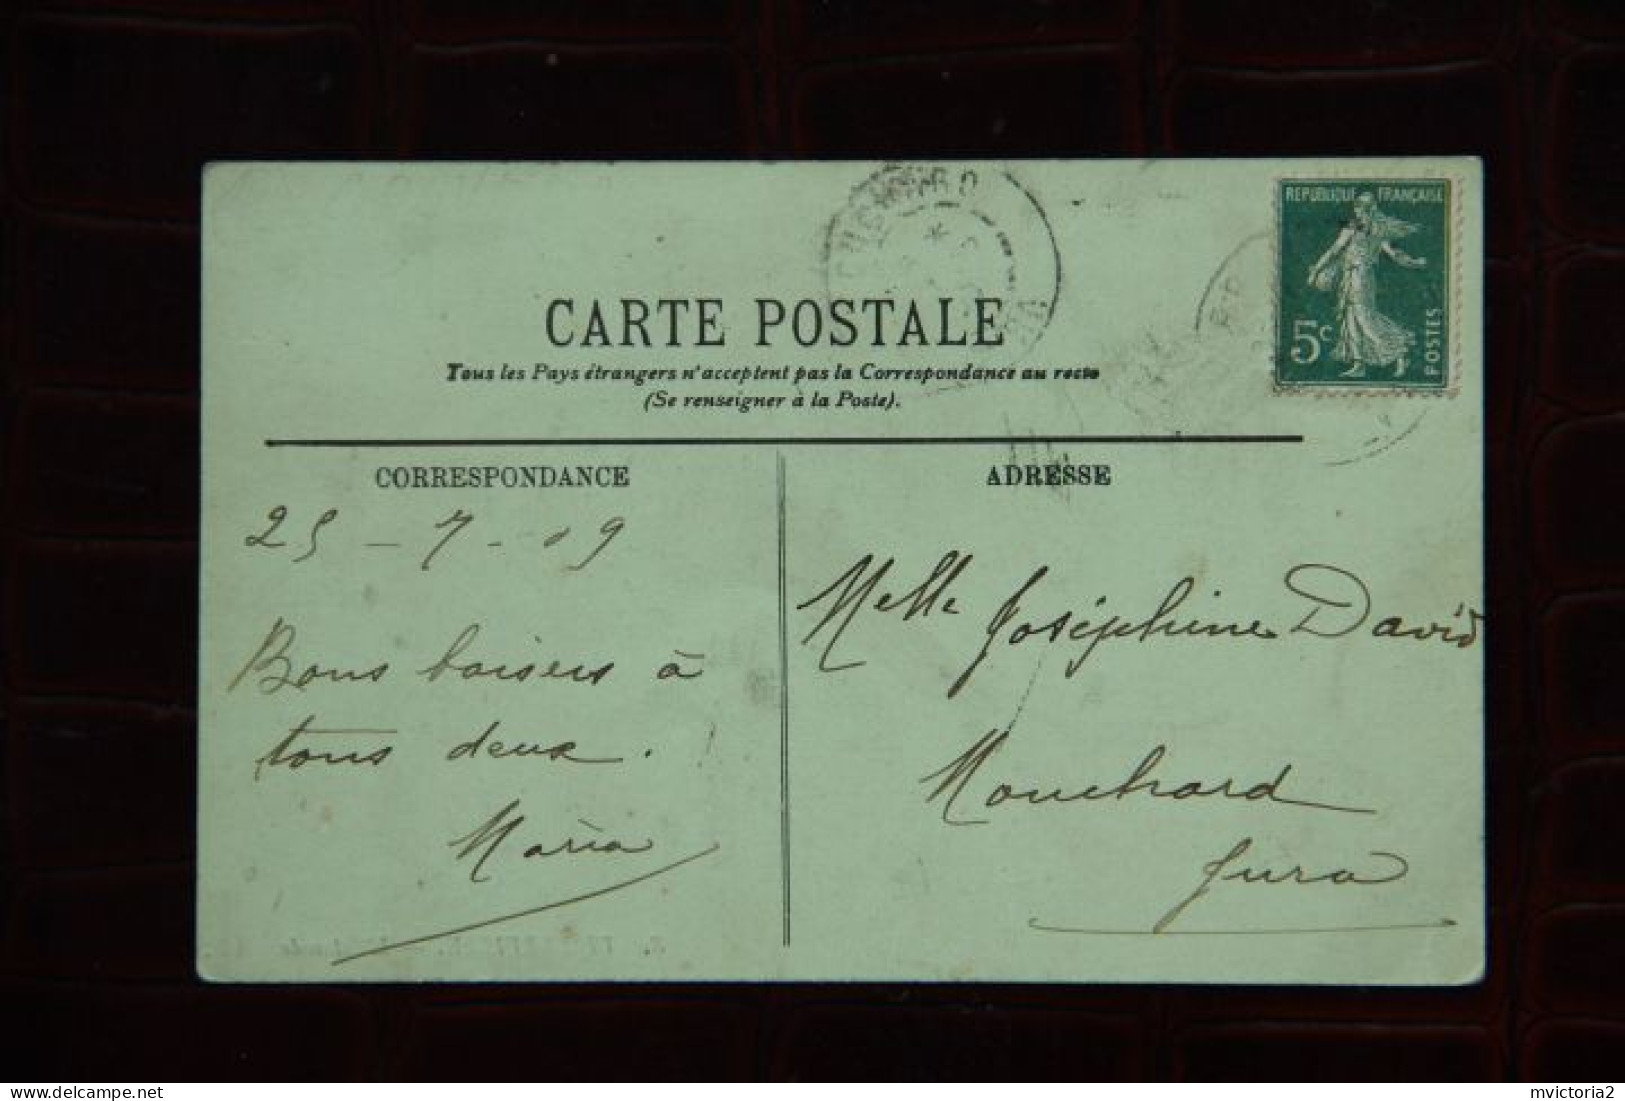 REPUBLIQUE FRANÇAISE
5c
POSTES
CARTE POSTALE
Tous les Pays étrangers n'acceptent pas la Correspondance au recto
(Se renseigner à la Poste).
CORRESPONDANCE
25 - 7 - 09
Bons baisers à
tous deux.
Maria
ADRESSE
Melle Joséphine David
Mouchard
Jura
delcampe.net
mvictoria2